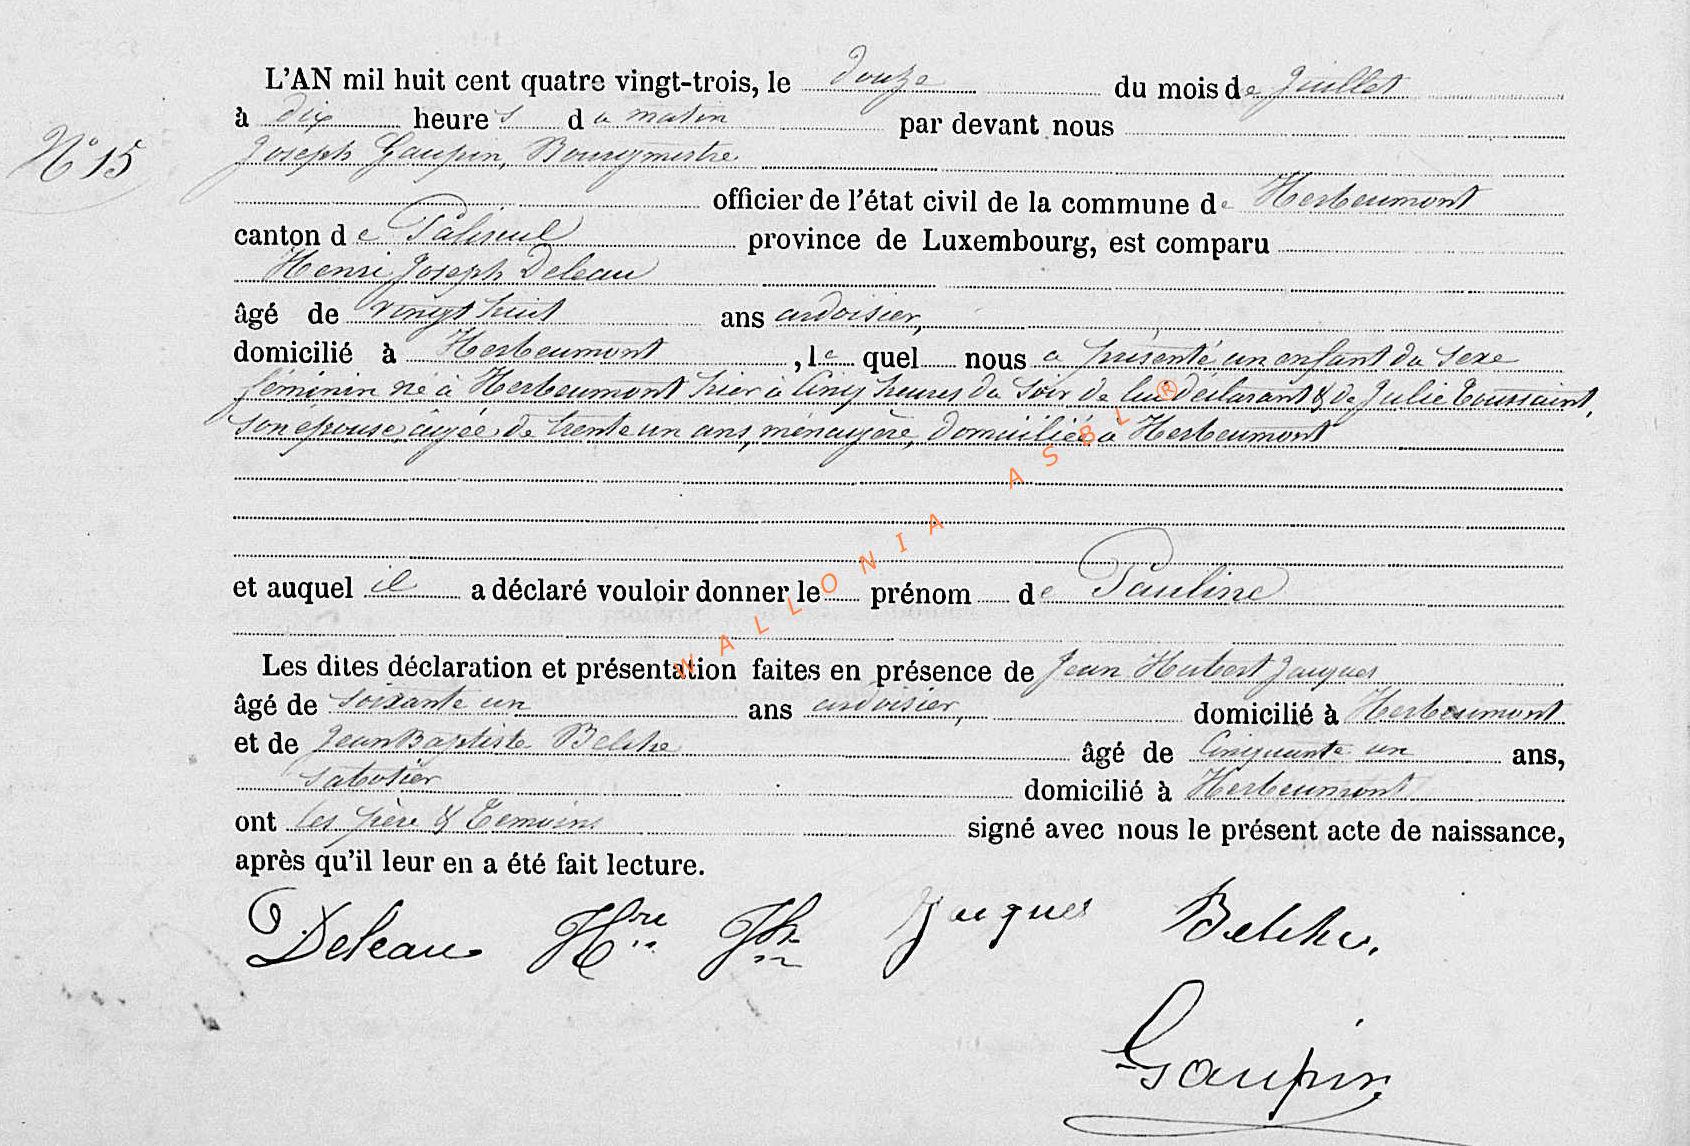 L'AN mil huit cent quatre vingt-trois, le douze du mois de Juillet
à dix heures du matin par devant nous
N° 15
Joseph Gaupin, Bourgmestre
officier de l'état civil de la commune de Herbeumont
canton de Paliseul province de Luxembourg, est comparu
Henri Joseph Deleau
âgé de vingt huit ans ardoisier,
domicilié à Herbeumont, le quel nous a présenté un enfant du sexe
féminin né à Herbeumont hier à cinq heures du soir de lui déclarant & de Julie Toussaint,
son épouse, âgée de trente un ans, ménagère, domiciliée à Herbeumont
et auquel il a déclaré vouloir donner le prénom de Pauline
Les dites déclaration et présentation faites en présence de Jean Hubert Jacques
âgé de soixante un ans ardoisier, domicilié à Herbeumont
et de Jean Baptiste Belche âgé de Cinquante un ans,
sabotier domicilié à Herbeumont
ont les père & Temoins signé avec nous le présent acte de naissance,
après qu'il leur en a été fait lecture.
Deleau Hri Jh Jacques Belche.
Gaupin
WALLONIA ASBL ®